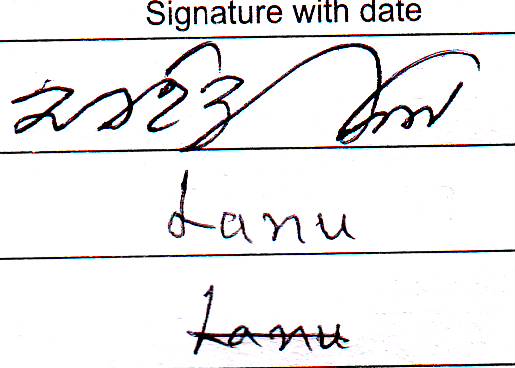 Signature with date
Lanu
Lanu